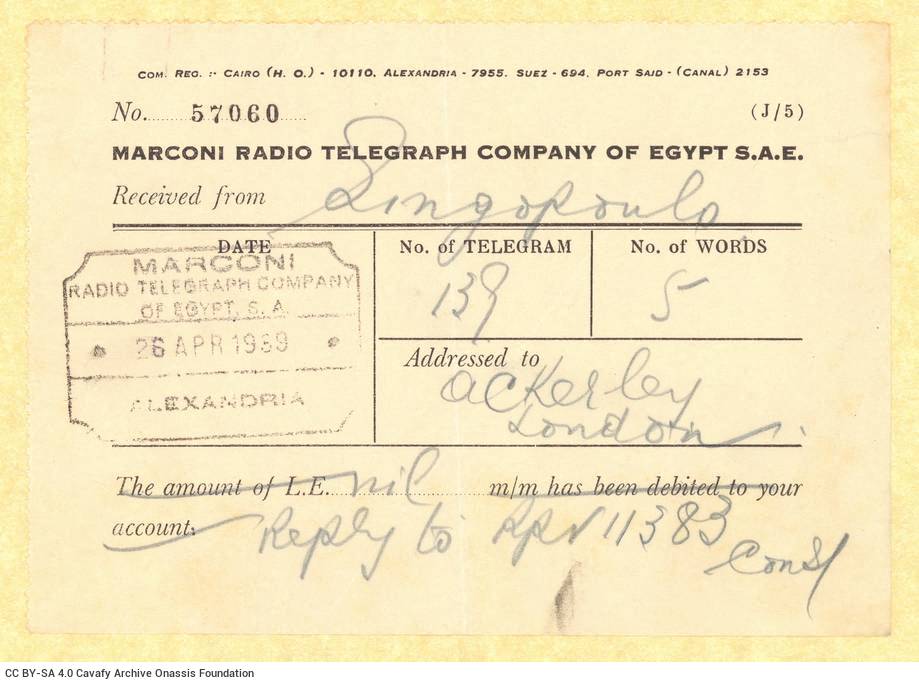 COM. REG. :- CAIRO (H. O.) - 10110, ALEXANDRIA - 7955. SUEZ - 694, PORT SAID - (CANAL) 2153
No. 57060 (J/5)
MARCONI RADIO TELEGRAPH COMPANY OF EGYPT S.A.E.
Received from Singopoulo
DATE No. of TELEGRAM No. of WORDS
MARCONI
RADIO TELEGRAPH COMPANY
OF EGYPT, S. A.
26 APR 1939
ALEXANDRIA
139 5
Addressed to
Ackerley
London
The amount of L.E. nil m/m has been debited to your
account:
Reply to 11383